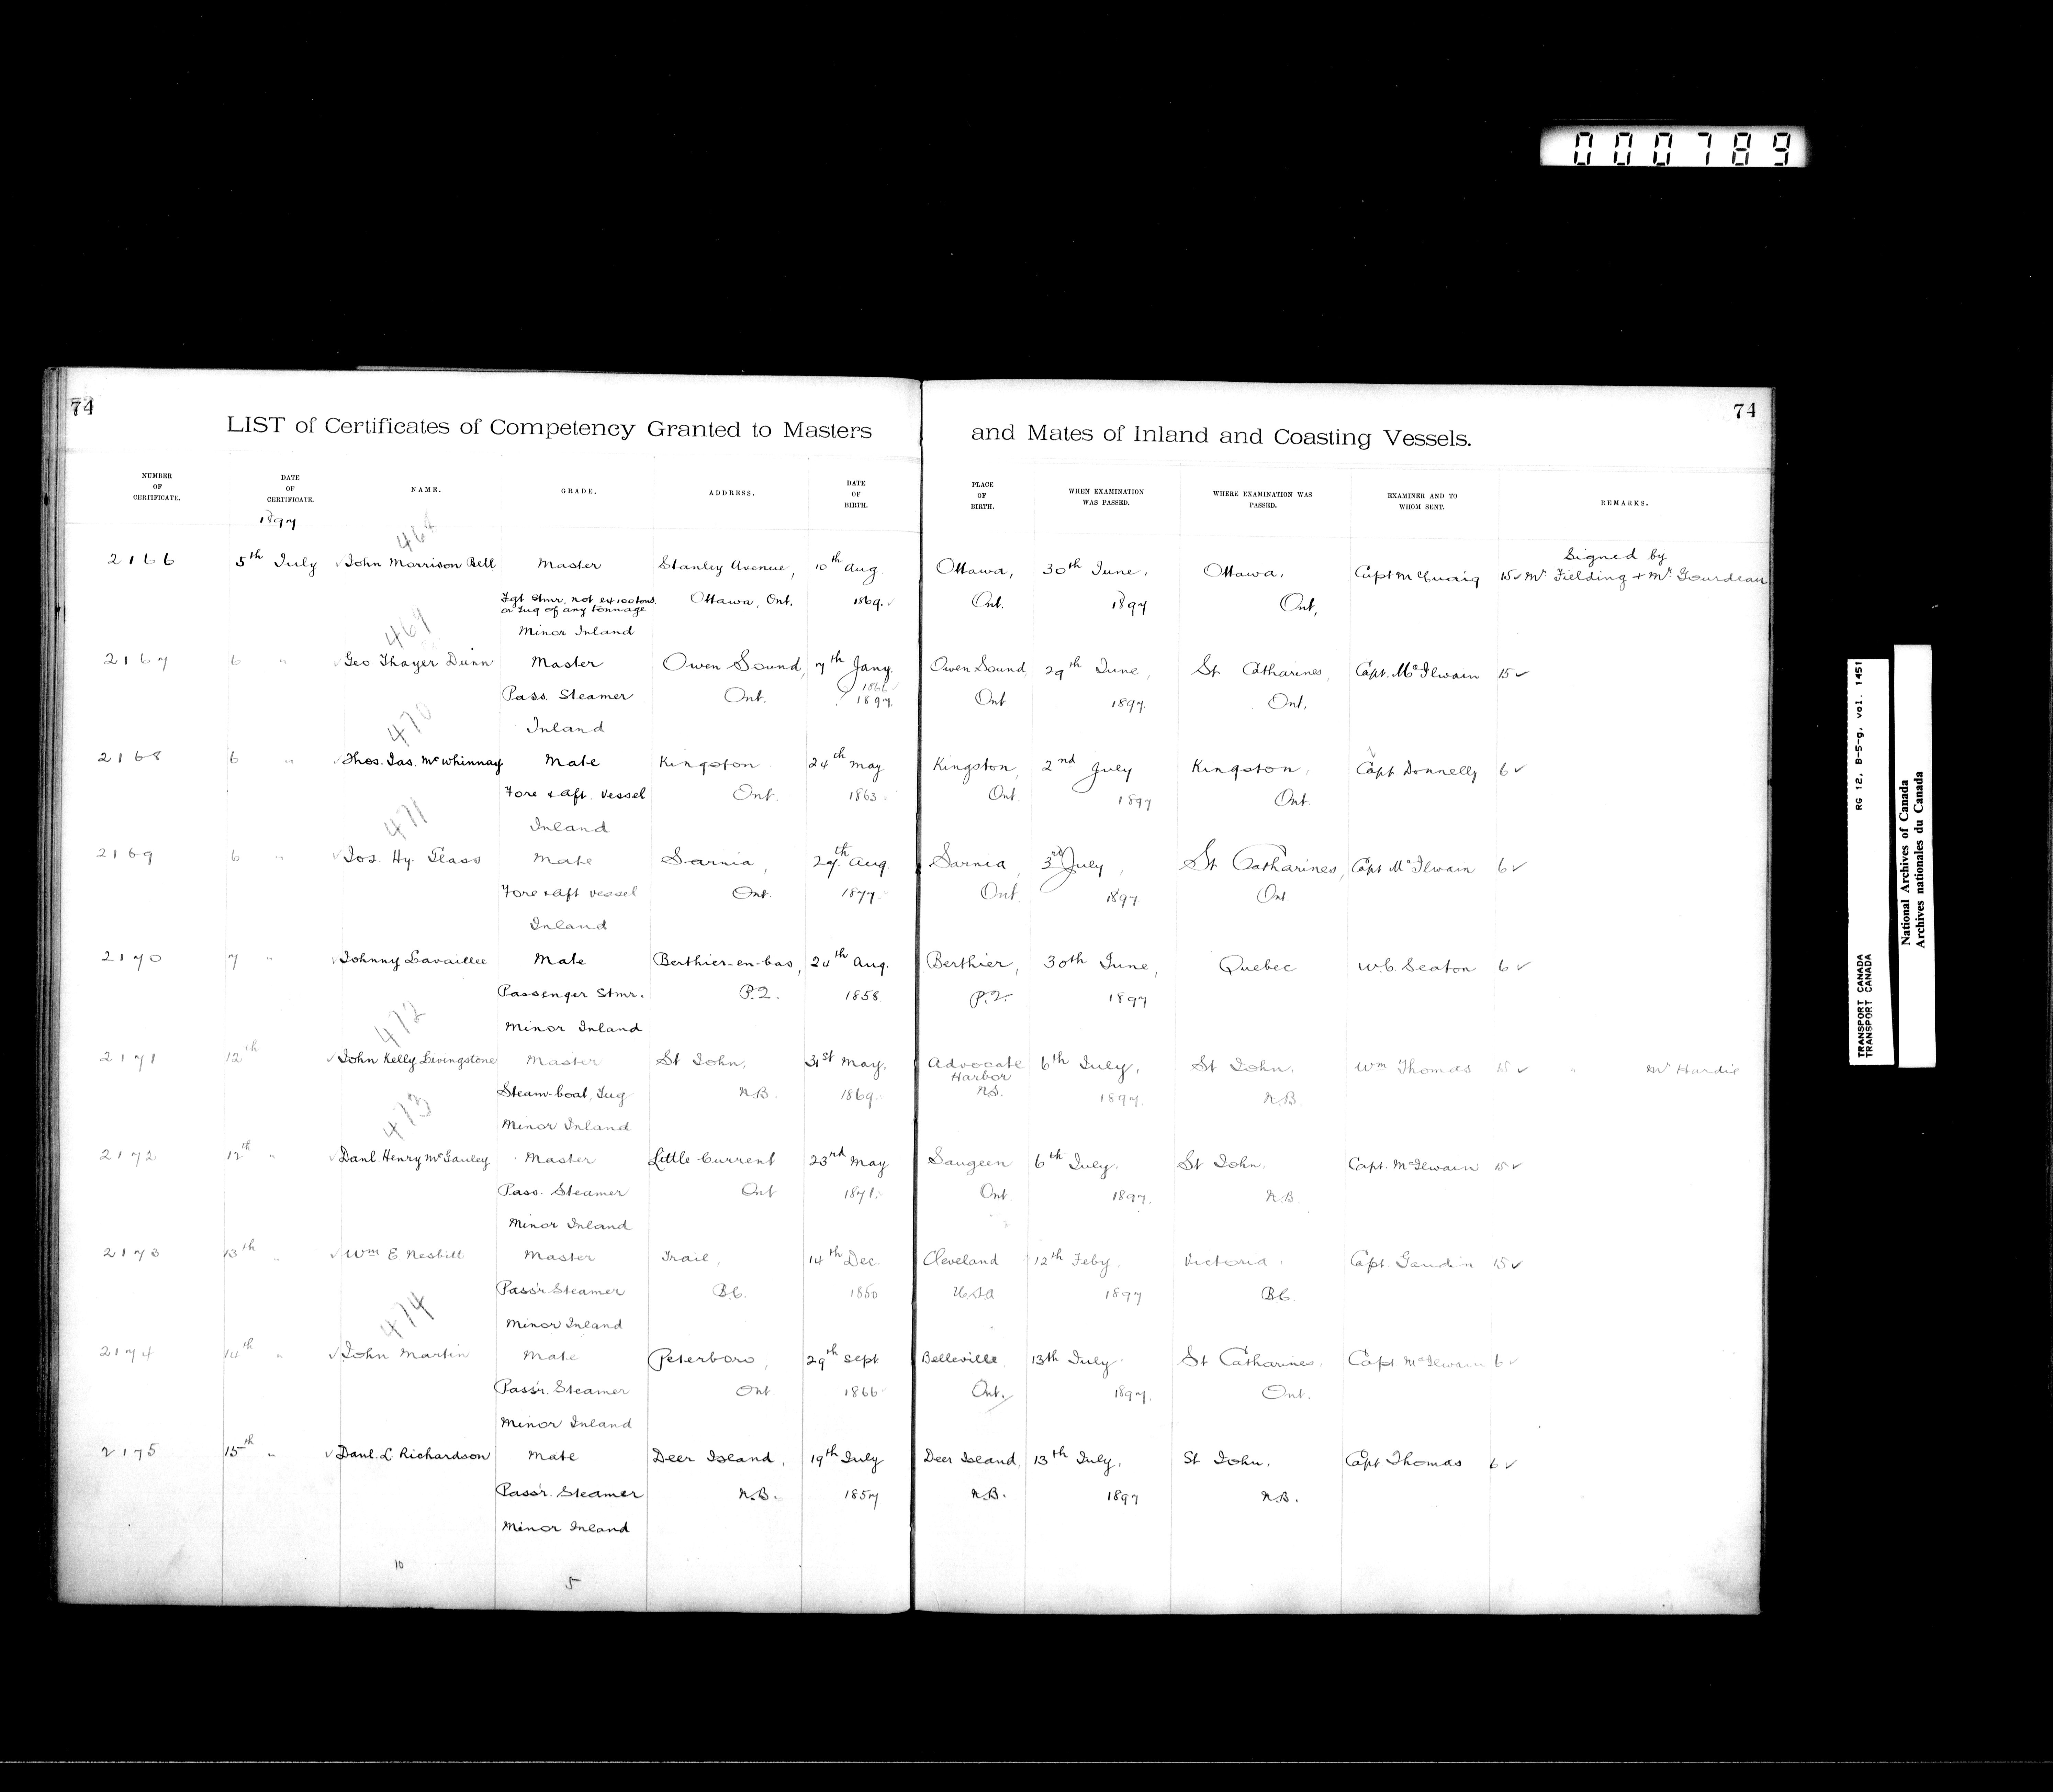 000789
74
74
LIST of Certificates of Competency Granted to Masters and Mates of Inland and Coasting Vessels.
NUMBER OF CERTIFICATE. DATE OF CERTIFICATE. NAME. GRADE. ADDRESS. DATE OF BIRTH. PLACE OF BIRTH. WHEN EXAMINATION WAS PASSED. WHERE EXAMINATION WAS PASSED. EXAMINER AND TO WHOM SENT. REMARKS.
1897
468
Signed by
2166 5th July ✓John Morrison Bell Master Stanley Avenue, 10th Aug Ottawa, 30th June, Ottawa, Capt McQuaig 15✓ Mr Fielding + Mr Gourdeau
Fgt Stmr, not ex 100 tons Ottawa, Ont. 1869.✓ Ont. 1897 Ont,
or Tug of any tonnage
469 Minor Inland
2167 6 " ✓Geo Thayer Dunn Master Owen Sound, 7th Jany. Owen Sound, 29th June, St Catharines, Capt. McIlwain 15✓
1866✓
Pass. Steamer Ont. 1897. Ont. 1897. Ont.
470 Inland
2168 6 " ✓Thos. Jas. McWhinnay Mate Kingston 24th May Kingston, 2nd July Kingston, Capt Donnelly 6✓
Fore & Aft. Vessel Ont. 1863. Ont. 1897 Ont.
471 Inland
2169 6 " ✓Jos. Hy. Glass Mate Sarnia, 27th Aug. Sarnia, 3rd July, St Catharines, Capt McIlwain 6✓
Fore & Aft vessel Ont. 1877. Ont. 1897. Ont
Inland
2170 7 " ✓Johnny Lavaillee Mate Berthier-en-bas, 24th Aug. Berthier, 30th June, Quebec W.C. Seaton 6✓
Passenger Stmr. P.Q. 1858 P.Q. 1897
472 Minor Inland
2171 12th ✓John Kelly Livingstone Master St John, 31st May, Advocate Harbor 6th July, St John, Wm Thomas 15✓ " Mr Hardie
Steam-boat, Tug N.B. 1869. N.S. 1897. N.B.
473 Minor Inland
2172 12th " ✓Danl Henry McGauley Master Little Current 23rd May Saugeen 6th July. St John. Capt. McIlwain 15✓
Pass. Steamer Ont 1871. Ont. 1897. N.B.
Minor Inland
2173 13th " ✓Wm E Nesbitt Master Trail, 14th Dec. Cleveland 12th Feby. Victoria, Capt. Gaudin 15✓
Pass'r Steamer B.C. 1850 USA 1897 B.C.
474 Minor Inland
2174 14th " ✓John Martin Mate Peterboro, 29th Sept Belleville 13th July. St Catharines. Capt McIlwain 6✓
Pass'r. Steamer Ont 1866 Ont. 1897. Ont.
Minor Inland
2175 15th " ✓Danl. L Richardson Mate Deer Island, 19th July Deer Island, 13th July, St John, Capt Thomas 6✓
Pass'r. Steamer N.B. 1857 N.B. 1897 N.B.
Minor Inland
10
5
TRANSPORT CANADA RG 12, B-5-g, vol. 1451
TRANSPORT CANADA
National Archives of Canada
Archives nationales du Canada